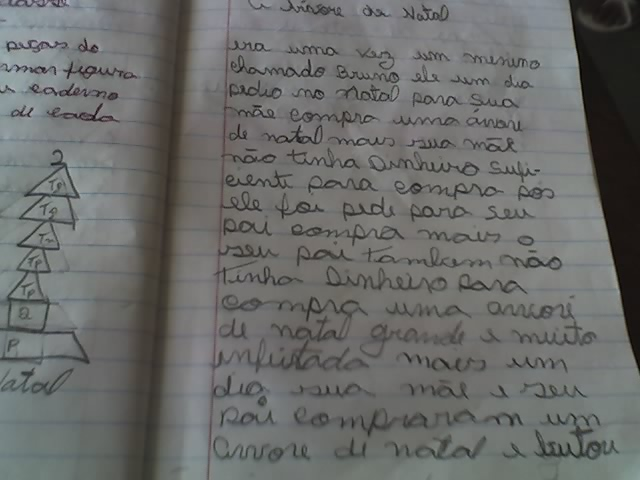 peças do
figura
caderno
de cada
2
Tp
Tg
Tm
Tp
Tp
Q
P
Natal
A árvore de Natal
era uma vez um menino
chamado Bruno ele um dia
pedio no natal para sua
mãe compra uma árvore
de natal mais sua mãe
não tinha Dinheiro sufi-
ciente para compra pos
ele foi pedi para seu
pai compra mais o
seu pai tambem não
tinha Dinheiro para
compra uma arvore
de natal grande e muito
infeitada mais um
dia sua mãe e seu
pai compraram um
arvore de natal e